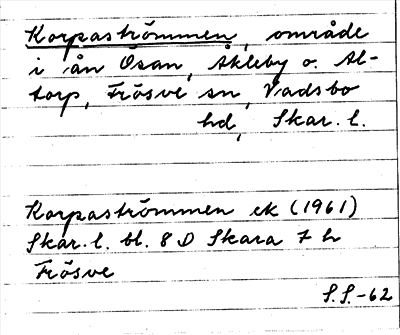 Korpaströmmen, område
i ån Ösan, Åkleby o. Al-
torp, Frösve sn, Vadsbo
hd, Skar. l.
Korpaströmmen ek (1961)
Skar. l. bl. 8 D Skara 7 h
Frösve
S.S.-62